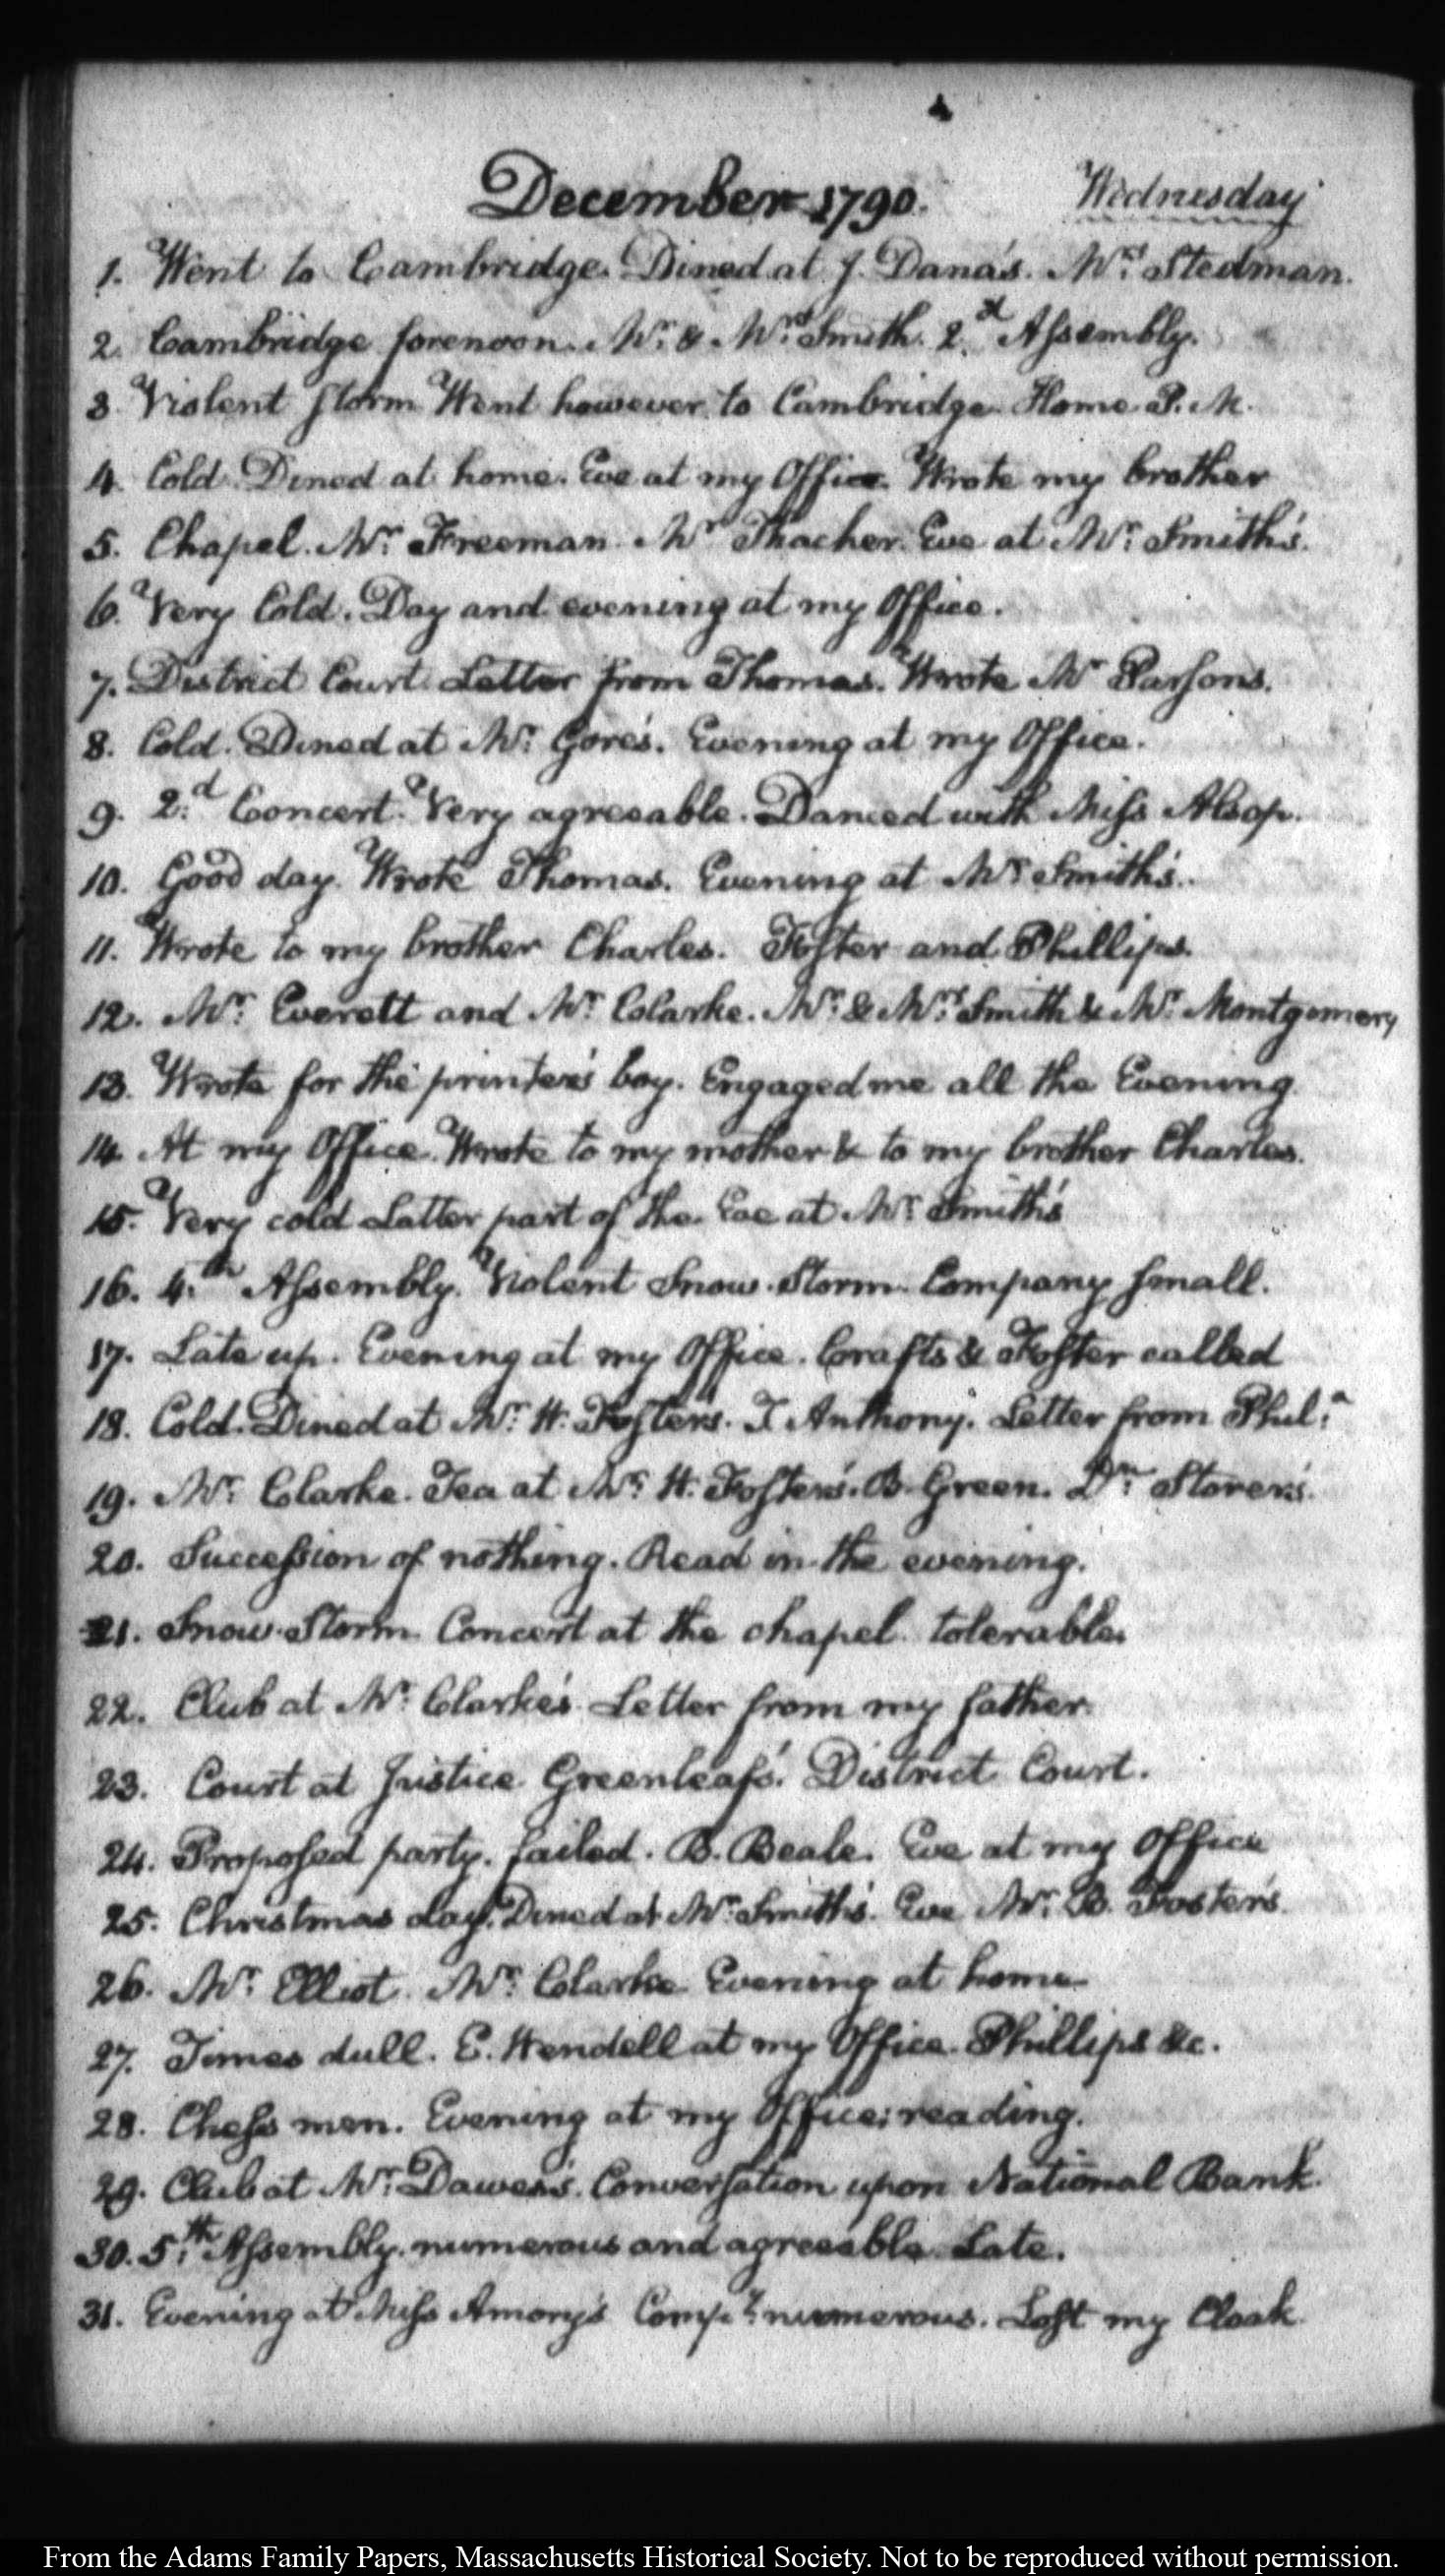 December 1790. Wednesday
1. Went to Cambridge. Dined at J. Dana's. Mrs. Stedman.
2. Cambridge forenoon. Mr. & Mrs. Smith. 2.d Assembly.
3 Violent storm Went however to Cambridge. Home P. M.
4. Cold. Dined at home. Eve at my Office. Wrote my brother
5. Chapel. Mr. Freeman. Mr Thacher. Eve at Mr. Smith's.
6. Very Cold. Day and evening at my Office.
7. District Court. Letter from Thomas. Wrote Mr Parsons.
8. Cold. Dined at Mr. Gore's. Evening at my Office.
9. 2.d Concert. Very agreeable. Danced with Miss Alsop.
10. Good day. Wrote Thomas. Evening at Mr. Smith's.
11. Wrote to my brother Charles. Foster and Phillips.
12. Mr. Everett and Mr. Clarke. Mr. & Mrs. Smith & Mr. Montgomery
13. Wrote for the printer's boy. Engaged me all the Evening.
14. At my Office. Wrote to my mother & to my brother Charles.
15. Very cold Latter part of the Eve at Mr. Smith's
16. 4.th Assembly. Violent Snow-Storm. Company small.
17. Late up. Evening at my Office. Crafts & Foster called
18. Cold. Dined at Mr. H. Foster's. J. Anthony. Letter from Phil.a
19. Mr. Clarke. Tea at Mr. H. Foster's. B. Green. Dr. Storer's.
20. Succession of nothing. Read in the evening.
21. Snow-Storm. Concert at the chapel tolerable.
22. Club at Mr. Clarke's. Letter from my father.
23. Court at Justice Greenleaf's. District Court.
24. Proposed party. failed. B. Beale. Eve at my Office
25. Christmas day. Dined at Mr. Smith's. Eve Mr. B. Foster's.
26. Mr. Elliot. Mr. Clarke Evening at home.
27. Times dull. E. Wendell at my Office. Phillips &c.
28. Chess men. Evening at my Office; reading.
29. Club at Mr. Dawes's. Conversation upon National Bank.
30. 5.th Assembly. numerous and agreeable. Late.
31. Evening at Miss Amory's Comp.y numerous. Lost my Cloak
From the Adams Family Papers, Massachusetts Historical Society. Not to be reproduced without permission.